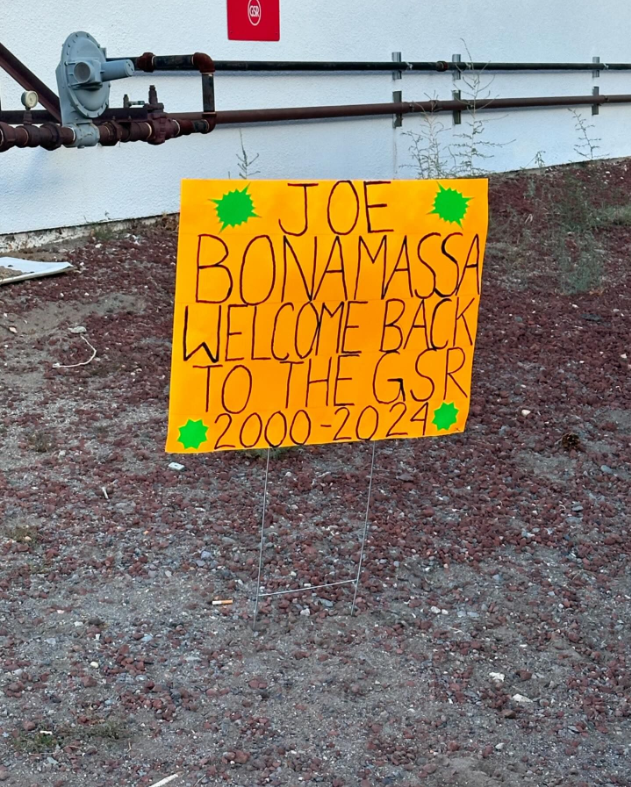 GSR
JOE
BONAMASSA
WELCOME BACK
TO THE GSR
2000-2024